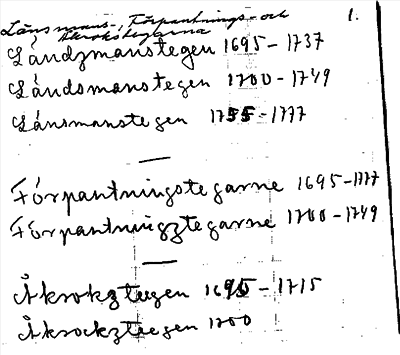 Länsmans-, Förpantnings- och 1.
Åkroksteegarna
Låndzmanstegen 1695-1737
Låndsmanstegen 1700-1749
Lånsmanstegen 1755-1777
Förpantningstegarne 1695-1777
Förpantningztegarne 1700-1749
Åkrokzteegen 1695-1715
Åkrockzteegen 1700